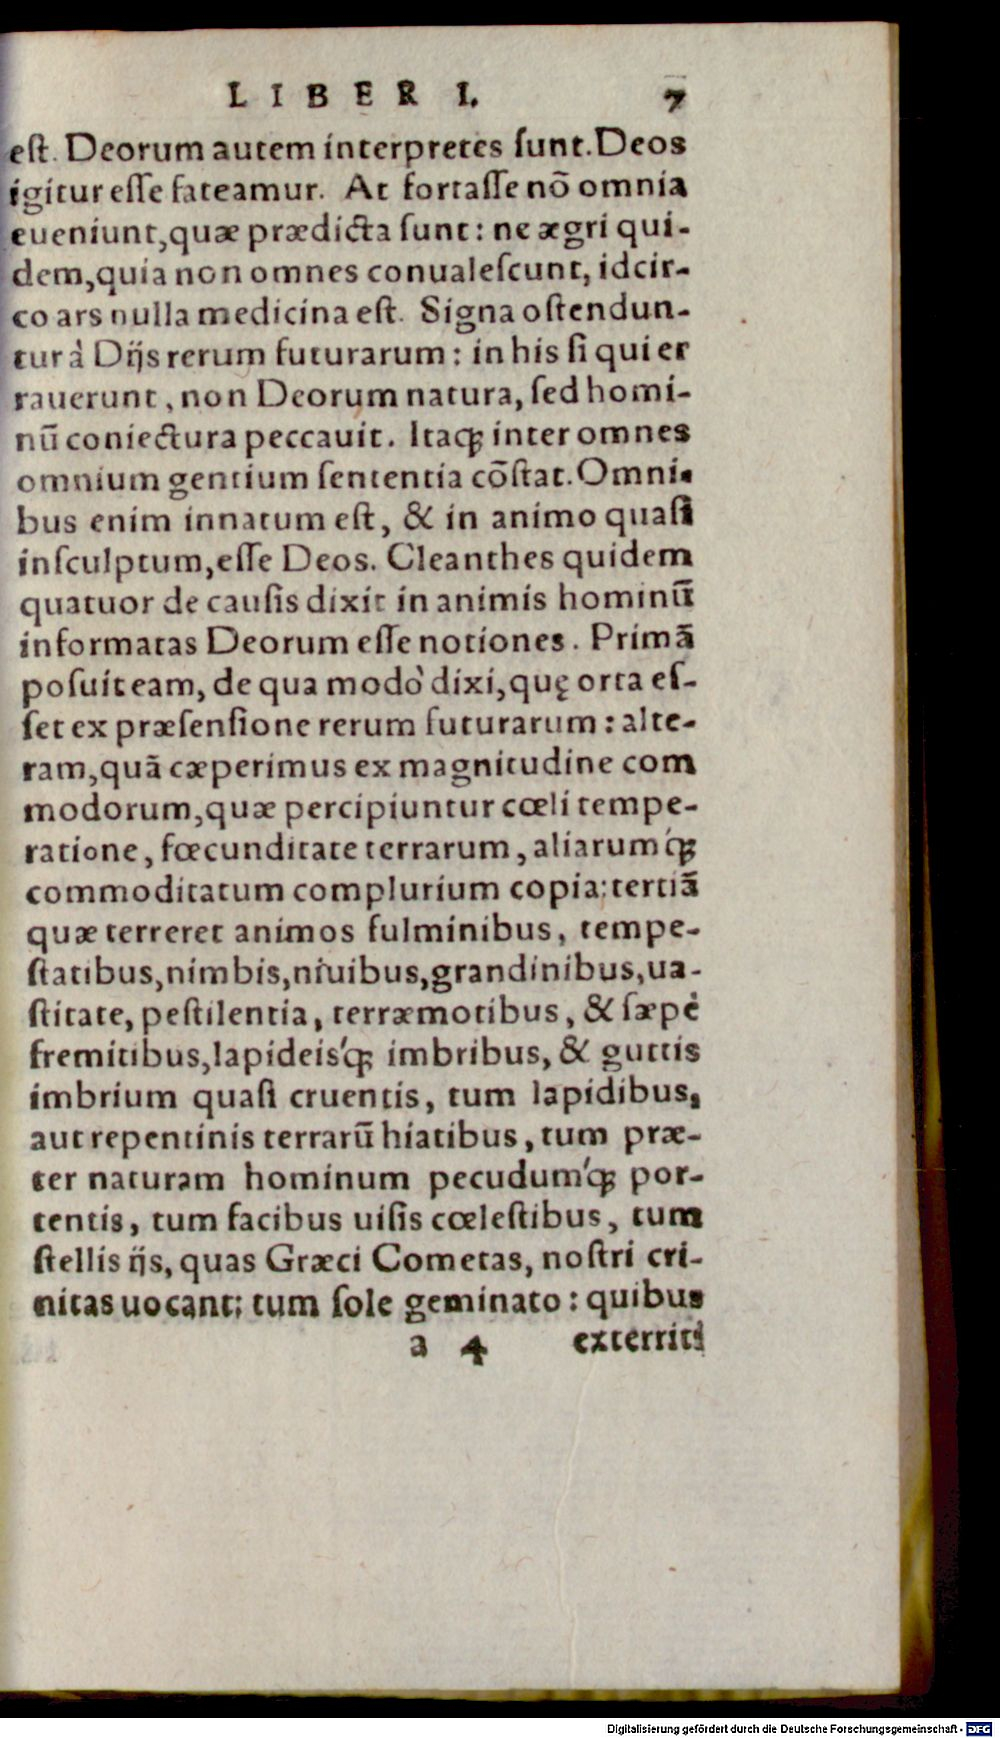 LIBER I. 7
eſt. Deorum autem interpretes ſunt. Deos
igitur eſſe fateamur. At fortaſſe nō omnia
eueniunt, quæ prædicta ſunt: ne ægri qui-
dem, quia non omnes conualeſcunt, idcir-
co ars nulla medicina eſt. Signa oſtendun-
tur à Dijs rerum futurarum: in his ſi qui er
rauerunt, non Deorum natura, ſed homi-
nū coniectura peccauit. Itaq́; inter omnes
omnium gentium ſententia cōſtat. Omni-
bus enim innatum eſt, & in animo quaſi
inſculptum, eſſe Deos. Cleanthes quidem
quatuor de cauſis dixit in animis hominū
informatas Deorum eſſe notiones. Primā
poſuit eam, de qua modò dixi, quę orta eſ-
ſet ex præſenſione rerum futurarum: alte-
ram, quā cæperimus ex magnitudine com
modorum, quæ percipiuntur cœli tempe-
ratione, fœcunditate terrarum, aliarumq́;
commoditatum complurium copia: tertiā
quæ terreret animos fulminibus, tempe-
ſtatibus, nimbis, niuibus, grandinibus, ua-
ſtitate, peſtilentia, terræmotibus, & ſæpè
fremitibus, lapideisq́; imbribus, & guttis
imbrium quaſi cruentis, tum lapidibus,
aut repentinis terrarū hiatibus, tum præ-
ter naturam hominum pecudumq́; por-
tentis, tum facibus uiſis cœleſtibus, tum
ſtellis ijs, quas Græci Cometas, noſtri cri-
nitas uocant: tum ſole geminato: quibus
a 4 exterriti
Digitalisierung gefördert durch die Deutsche Forschungsgemeinschaft - DFG